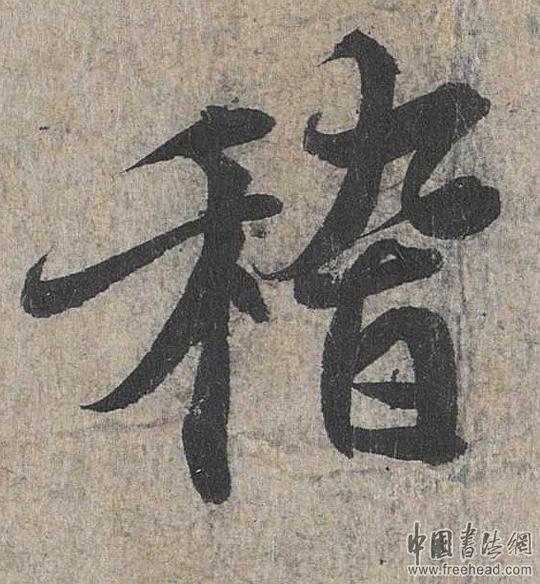 稽
中国書法網
www.freehead.com